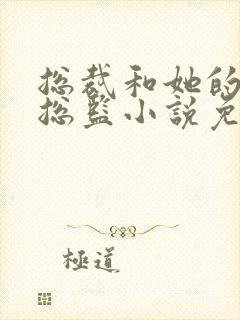 总裁和她的
总监小説免
極道